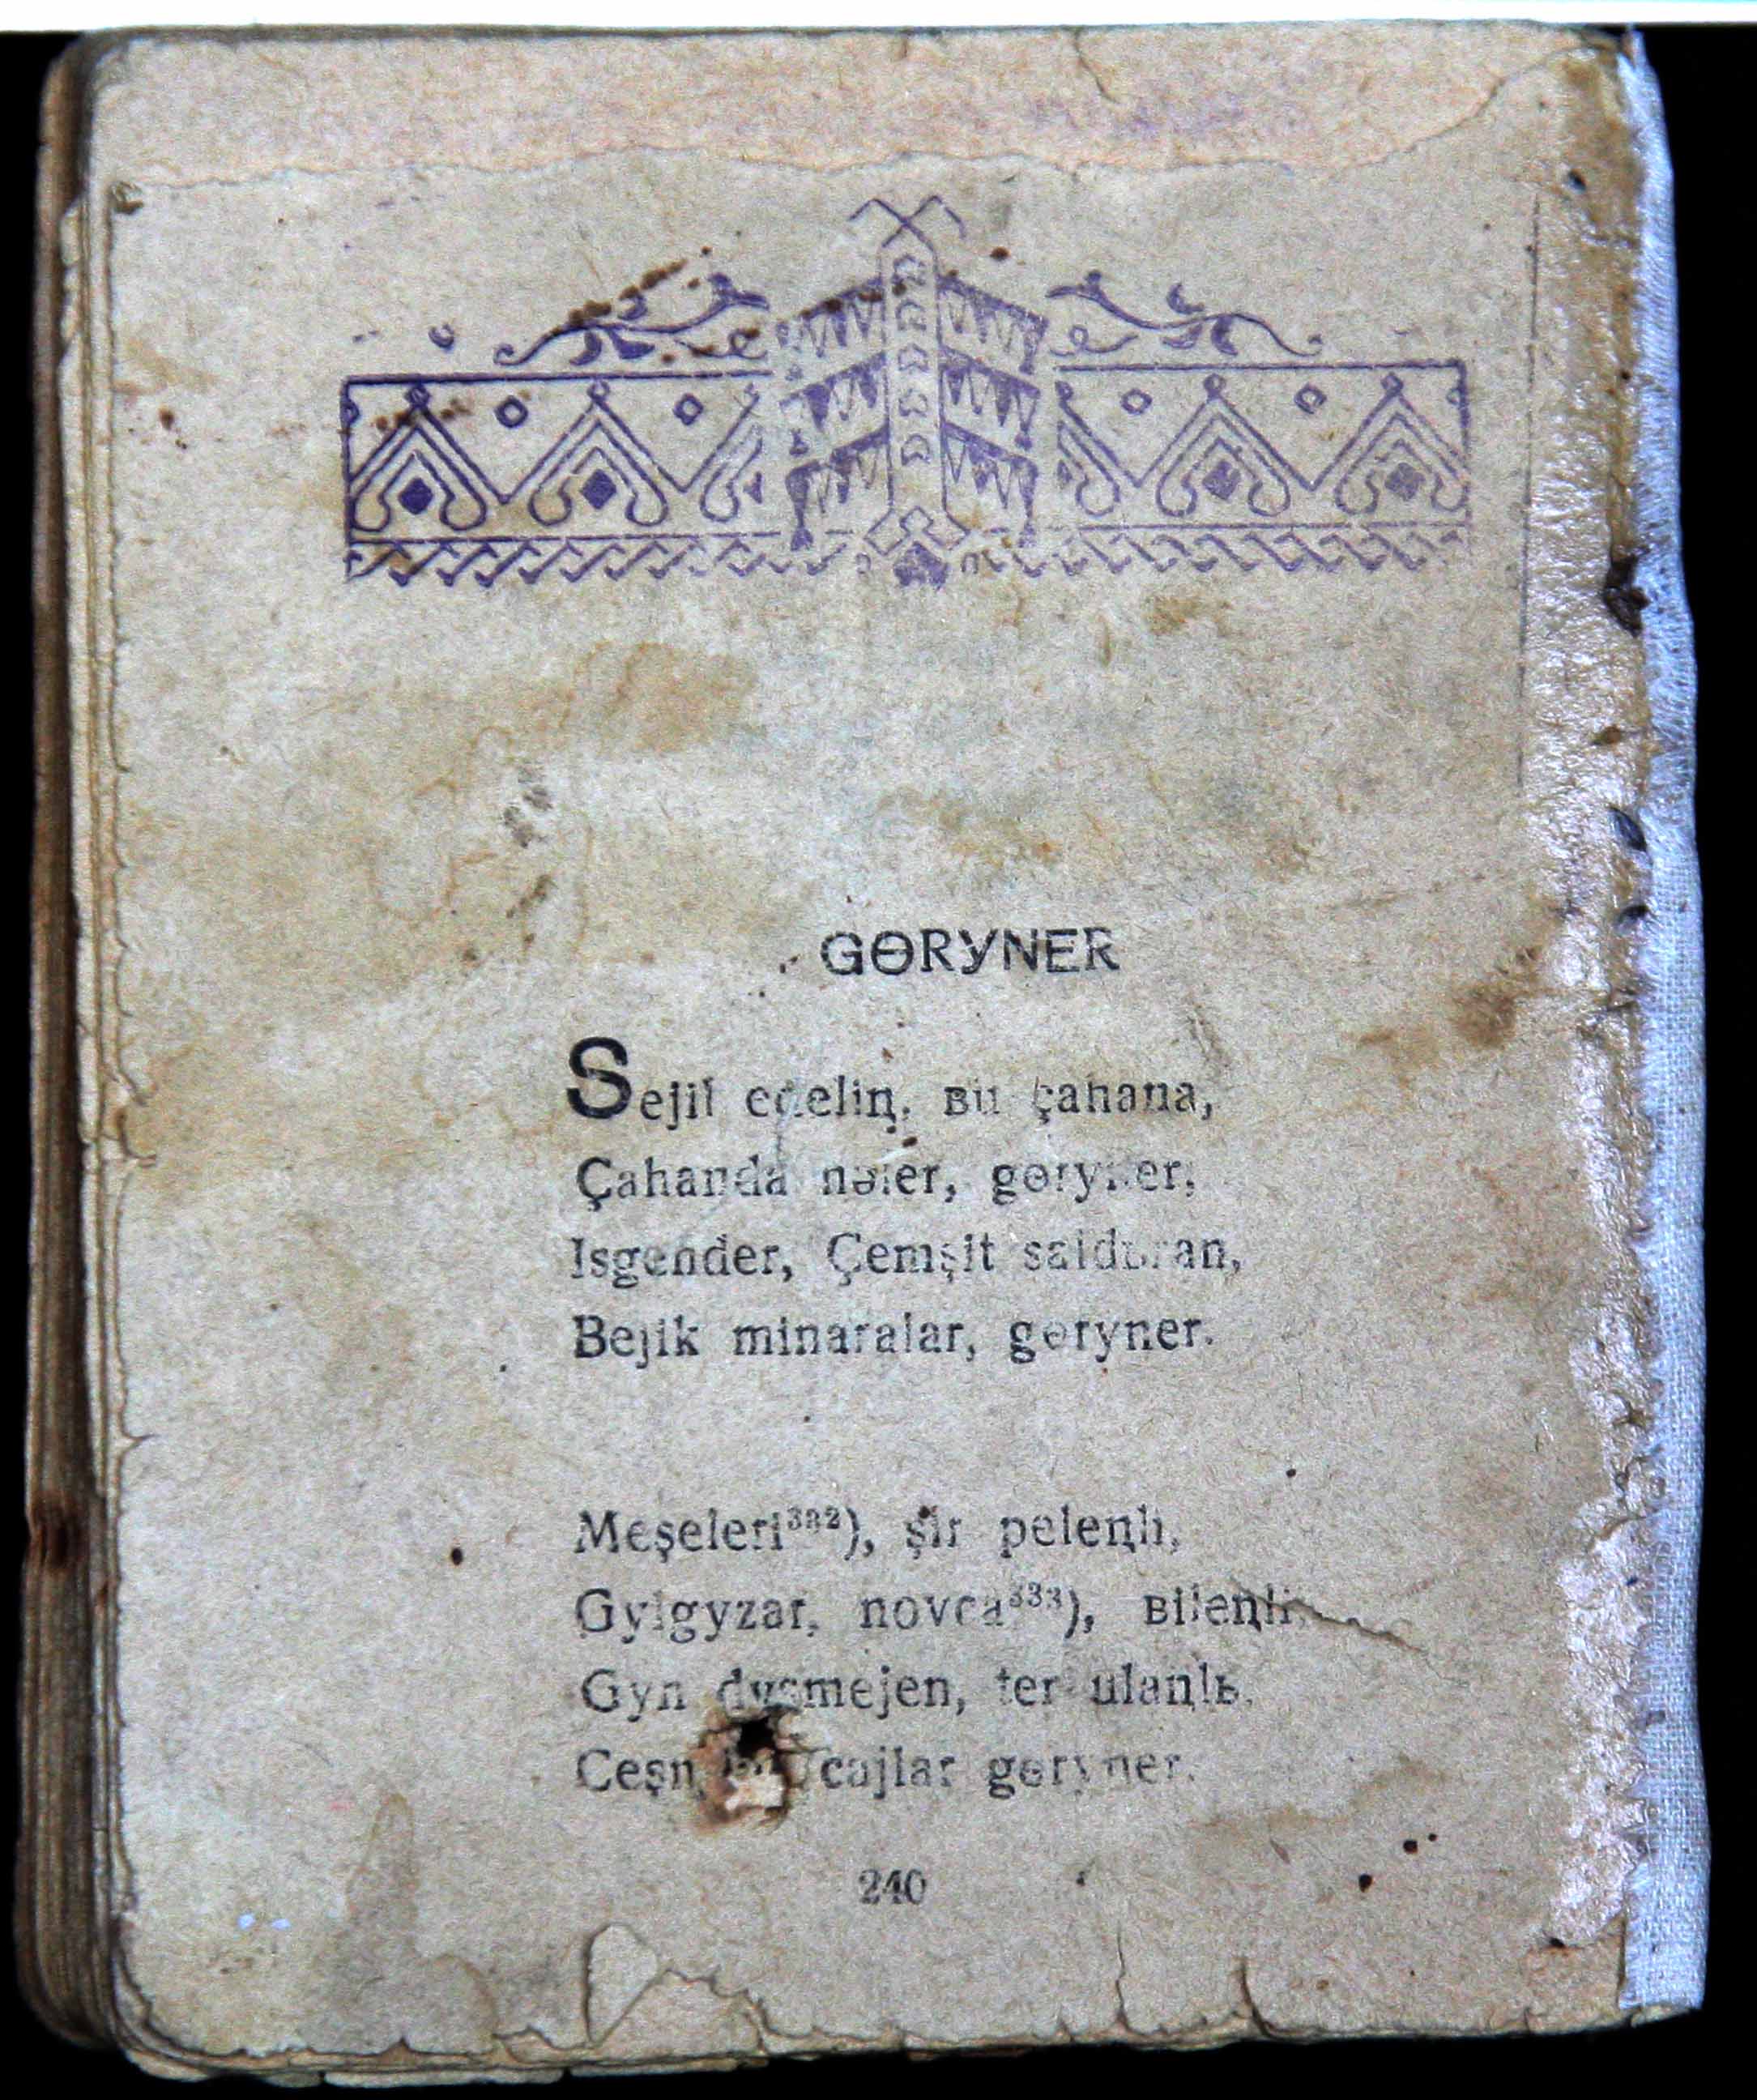 GɵRYNER
Sejil edelin, ʙu çahana,
Çahanda nəler, gɵryner,
Isgender, Çemşit saldьran,
Bejik minaralar, gɵryner.
Meşeleri³³²), şir peleꞑli,
Gylgyzar, novca³³³), ʙileꞑli,
Gyn dyşmejen, ter ulaꞑlь.
cajlar gɵryner.
240